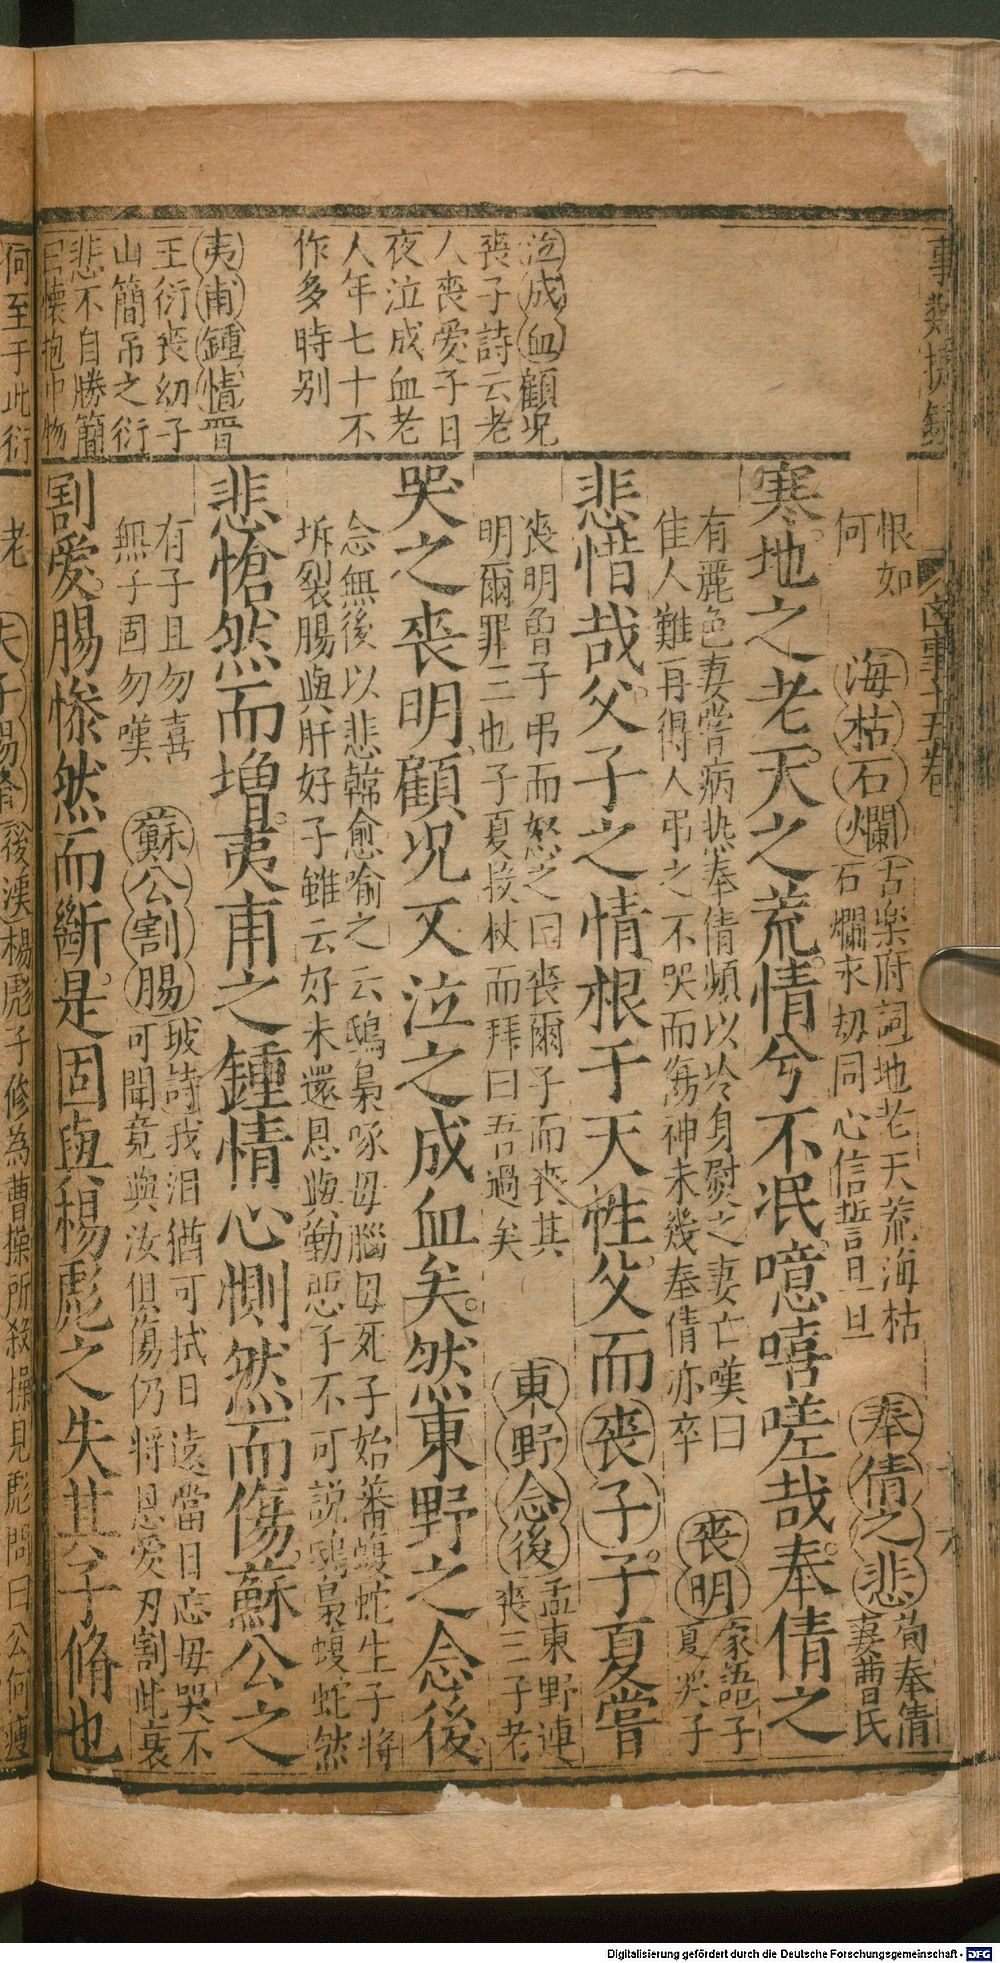 恨如
何
海枯石爛
古樂府詞地老天荒海枯
石爛永劫同心信誓旦旦
奉倩之悲
荀奉倩
妻曹氏
寒地之老天之荒情兮不泯噫嘻嗟哉奉倩之
有麗色妻嘗病熱奉倩頻以冷身熨之妻亡嘆曰
佳人難再得人弔之不哭而傷神未幾奉倩亦卒
喪明
家語子
夏哭子
悲惜哉父子之情根于天性父而喪子子夏嘗
喪明曾子弔而怒之曰喪爾子而喪其
明爾罪三也子夏投杖而拜曰吾過矣
東野念後
孟東野連
喪三子老
哭之喪明顧況又泣之成血矣然東野之念後
念無後以悲韓愈喻之云鴟梟啄母腦母死子始蕃蝮蛇生子將
坼裂腸與肝好子雖云好未還恩與勤惡子不可説鴟梟蝮蛇然
悲愴然而增夷甫之鍾情心惻然而傷蘇公之
有子且勿喜
無子固勿嘆
蘇公割腸
坡詩我泪猶可拭日遠當日忘母哭不
可聞竟與汝俱傷仍將恩愛刃割此衰
割愛腸慘然而斷是固與楊彪之失其子脩也
老
後漢楊彪子修為曹操所殺操見彪問曰公何瘦
泣成血顧況
喪子詩云老
人喪愛子日
夜泣成血老
人年七十不
作多時别
夷甫鍾情晋
王衍喪幼子
山簡吊之衍
悲不自勝簡
曰懐抱中物
何至于此衍
十五卷
Digitalisierung gefördert durch die Deutsche Forschungsgemeinschaft - DFG